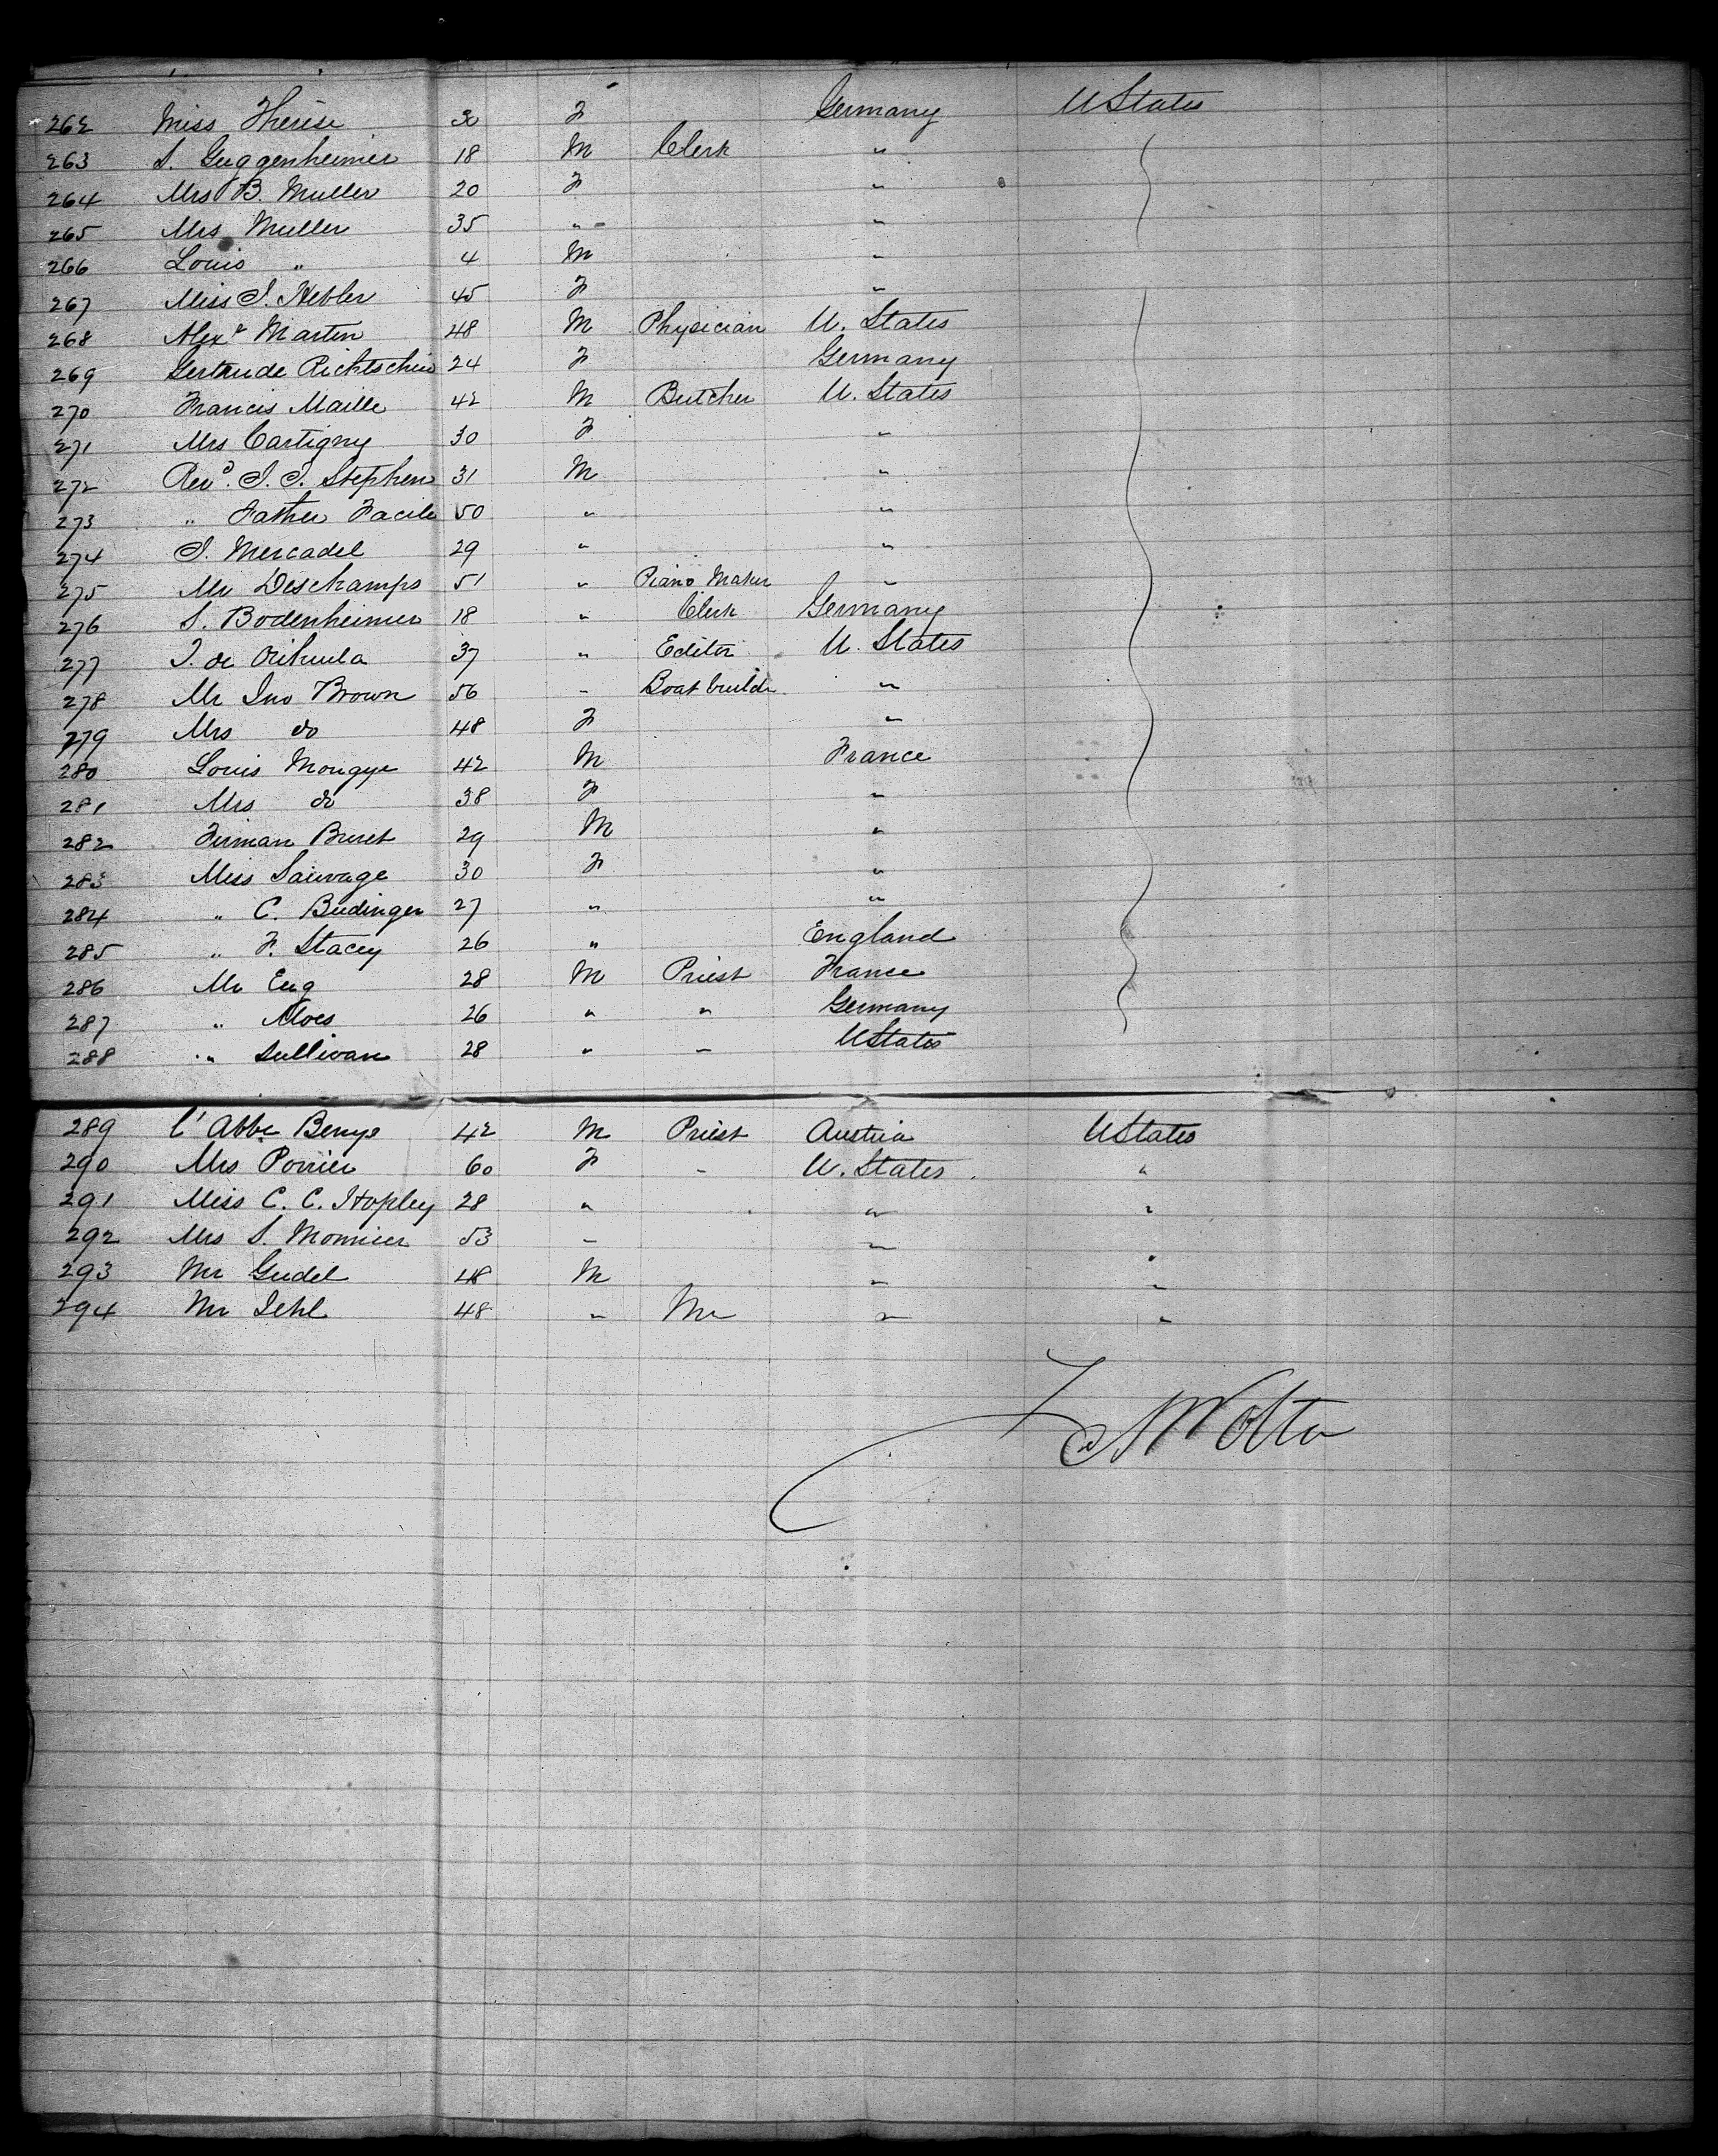 262 Miss Therese 30 F Germany UStates
263 S. Guggenheimer 18 M Clerk "
264 Mrs B. Muller 20 F "
265 Mrs Muller 35 " "
266 Louis " 4 M "
267 Miss J. Hebler 45 F "
268 Alexr Martin 48 M Physician U. States
269 Gertrude 24 F Germany
270 Francis Maille 42 M Butcher U. States
271 Mrs Cartigny 30 F "
272 Revd. J. J. Stephen 31 M "
273 " Father Facile 50 " "
274 J. Mercadel 29 " "
275 Mr Deschamps 51 " Piano Maker "
276 S. Bodenheimer 18 " Clerk Germany
277 J. de Orihuela 37 " Editor U. States
278 Mr Jno Brown 56 " Boat builder "
279 Mrs do 48 F "
280 Louis Mougye 42 M France
281 Mrs do 38 F "
282 Firman Buret 29 M "
283 Miss Sauvage 30 F "
284 " C. Budinger 27 " "
285 " F. Stacey 26 " England
286 Mr Eug 28 M Priest France
287 " 26 " " Germany
288 " Sullivan 28 " " UStates
289 l'Abbe Benye 42 M Priest Austria UStates
290 Mrs Porrier 60 F " U. States "
291 Miss C. C. Hopley 28 " " "
292 Mrs S. Monnier 53 " " "
293 Mr Gudel 48 M " "
294 Mr Jehl 48 " Mr " "